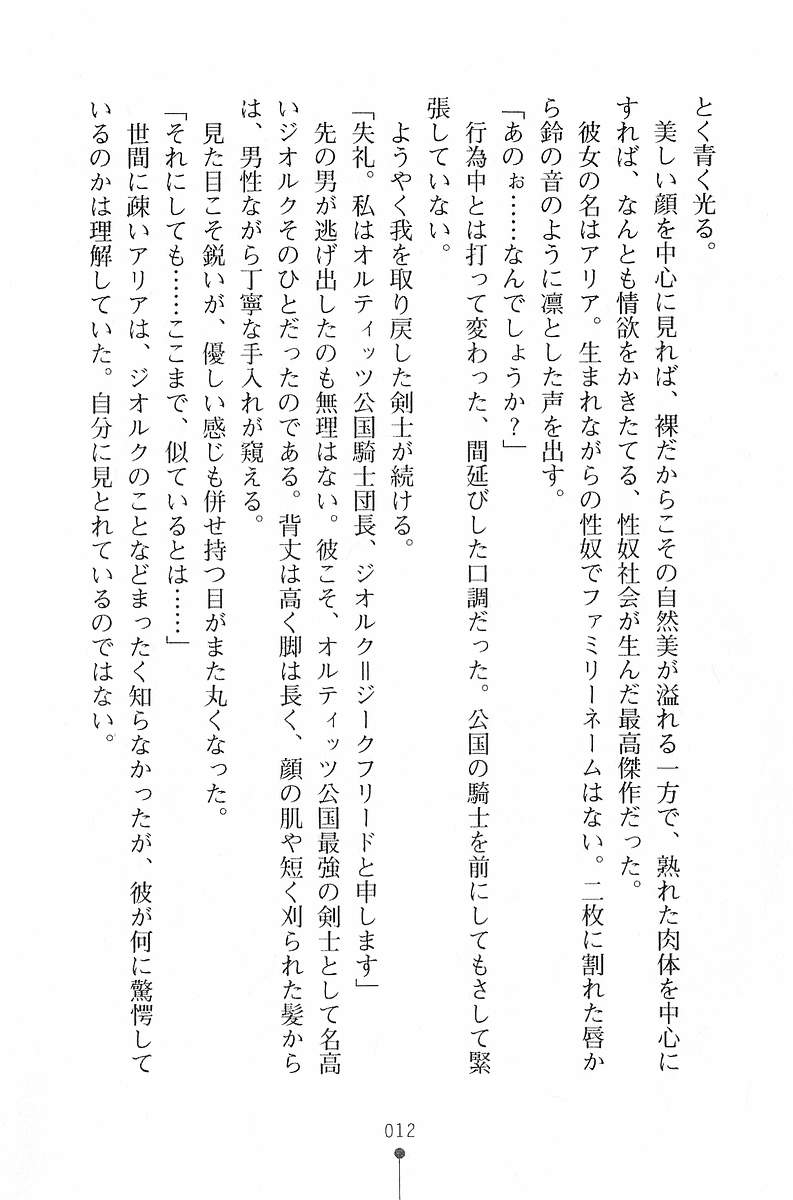 とく青く光る。
　美しい顔を中心に見れば、裸だからこその自然美が溢れる一方で、熟れた肉体を中心に
すれば、なんとも情欲をかきたてる、性奴社会が生んだ最高傑作だった。
　彼女の名はアリア。生まれながらの性奴でファミリーネームはない。二枚に割れた唇か
ら鈴の音のように凛とした声を出す。
「あのぉ……なんでしょうか？」
　行為中とは打って変わった、間延びした口調だった。公国の騎士を前にしてもさして緊
張していない。
　ようやく我を取り戻した剣士が続ける。
「失礼。私はオルティッツ公国騎士団長、ジオルク＝ジークフリードと申します」
　先の男が逃げ出したのも無理はない。彼こそ、オルティッツ公国最強の剣士として名高
いジオルクそのひとだったのである。背丈は高く脚は長く、顔の肌や短く刈られた髪から
は、男性ながら丁寧な手入れが窺える。
　見た目こそ鋭いが、優しい感じも併せ持つ目がまた丸くなった。
「それにしても……ここまで、似ているとは……」
　世間に疎いアリアは、ジオルクのことなどまったく知らなかったが、彼が何に驚愕して
いるのかは理解していた。自分に見とれているのではない。
012